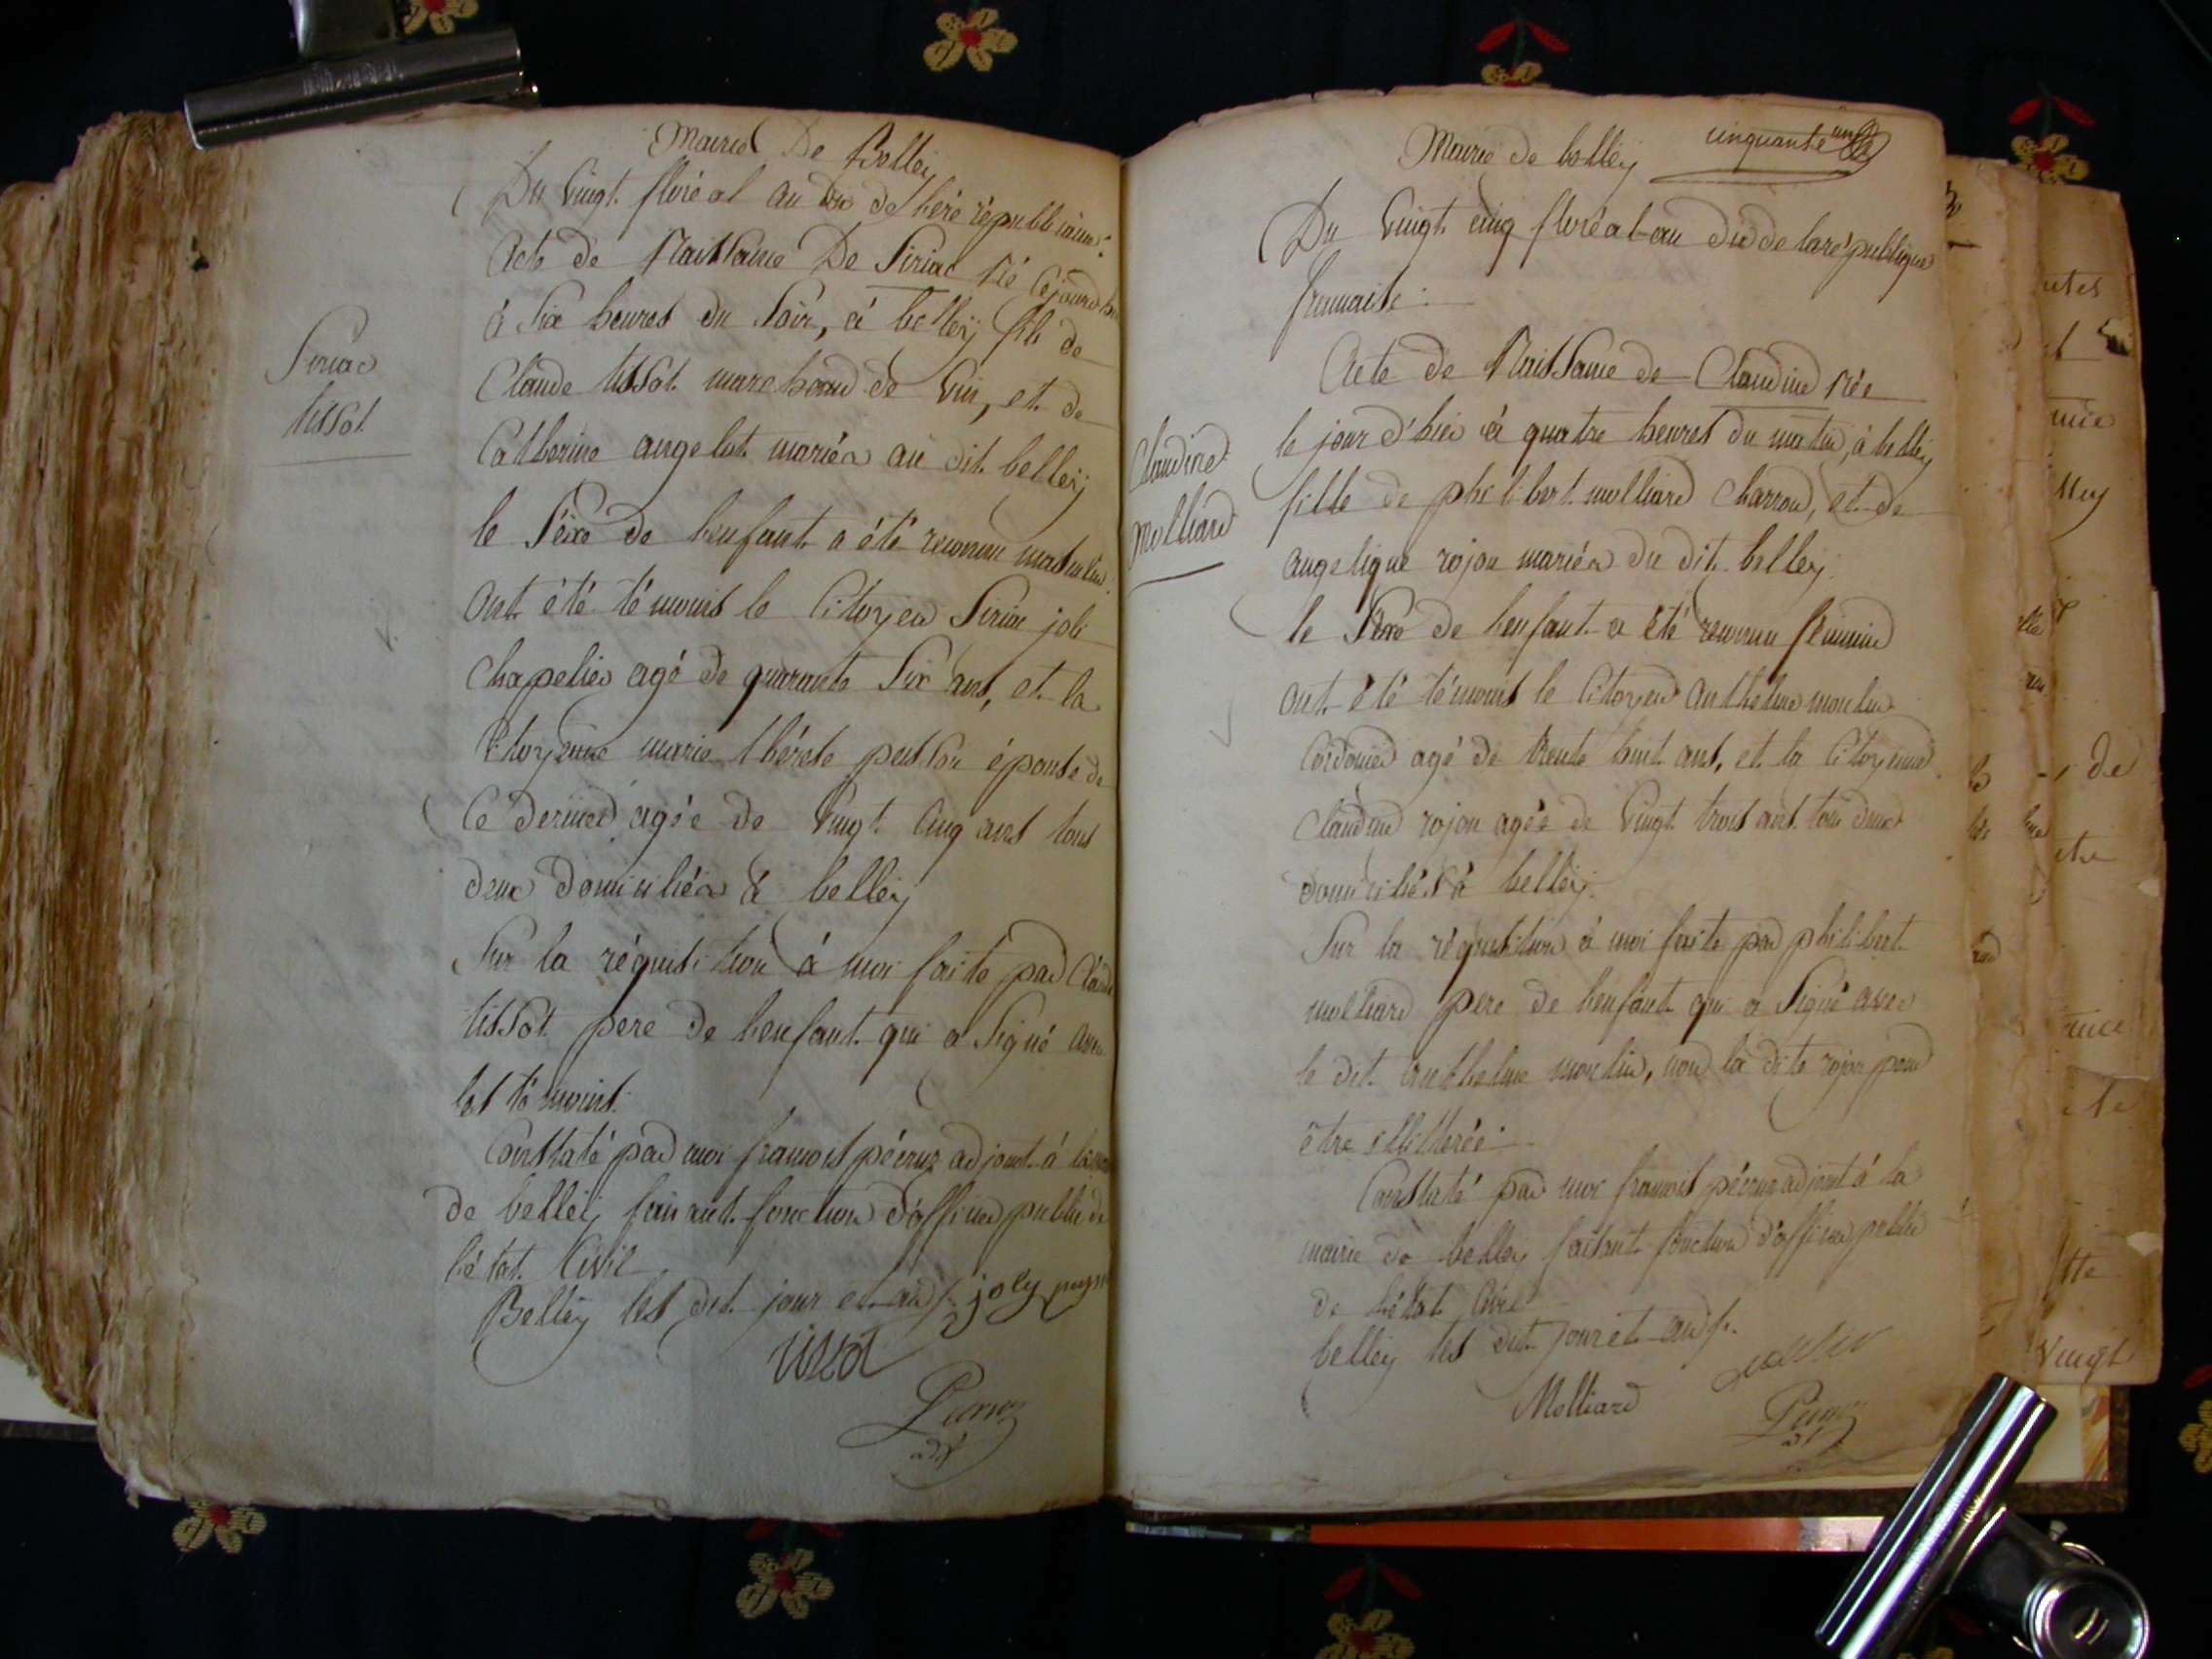 Mairie De Belley
Du Vingt floréal an dix de l'ère républicaine
Acte de Naissance De Siriac né Cejourd'hui
à Six heures du Soir, à belley fils de
Claude tissot marchand de Vin, et de
Catherine angelot mariés au dit belley
le Séxe de l'enfant a été reconnu masculin
Ont été témoins le Citoyen Siriac joli
Chapelier agé de quarante Six ans, et la
Citoyenne marie thérése épouse de
Ce dernier agée de Vingt Cinq ans tous
deux domiciliés à belley
Sur la réquisition à moi faite par Claude
tissot pere de l'enfant qui a Signé avec
les témoins
Constaté par moi françois pécruz adjoint à la
de belley faisant fonction d'officier public de
l'état Civil
Belley les dit jour et an joly
tissot
Siriac
tissot
Mairie de belley cinquante un
Du Vingt cinq floréal an dix de la république
francaise
Acte de Naissance de Claudine Née
le jour d'hier à quatre heures du matin, à belley
fille de philibert molliard Charron, et de
angelique rojon mariés du dit belley
le Séxe de l'enfant a été reconnu féminin
Ont été témoins le Citoyen anthelme moulin
Cordonier agé de trente huit ans, et la Citoyenne
Claudine rojon agée de Vingt trois ans tou deux
domiciliés à belley
Sur la réquisition à moi faite par philibert
molliard pere de l'enfant qui a Signé avec
le dit anthelme moulin, non la dite rojon pour
être illitterée
Constaté par moi françois pécruz adjoint à la
mairie de belley faisant fonction d'officier public
de l'état Civil
belley les dit jour et an
Molliard
Claudine
Molliard
de
Vingt